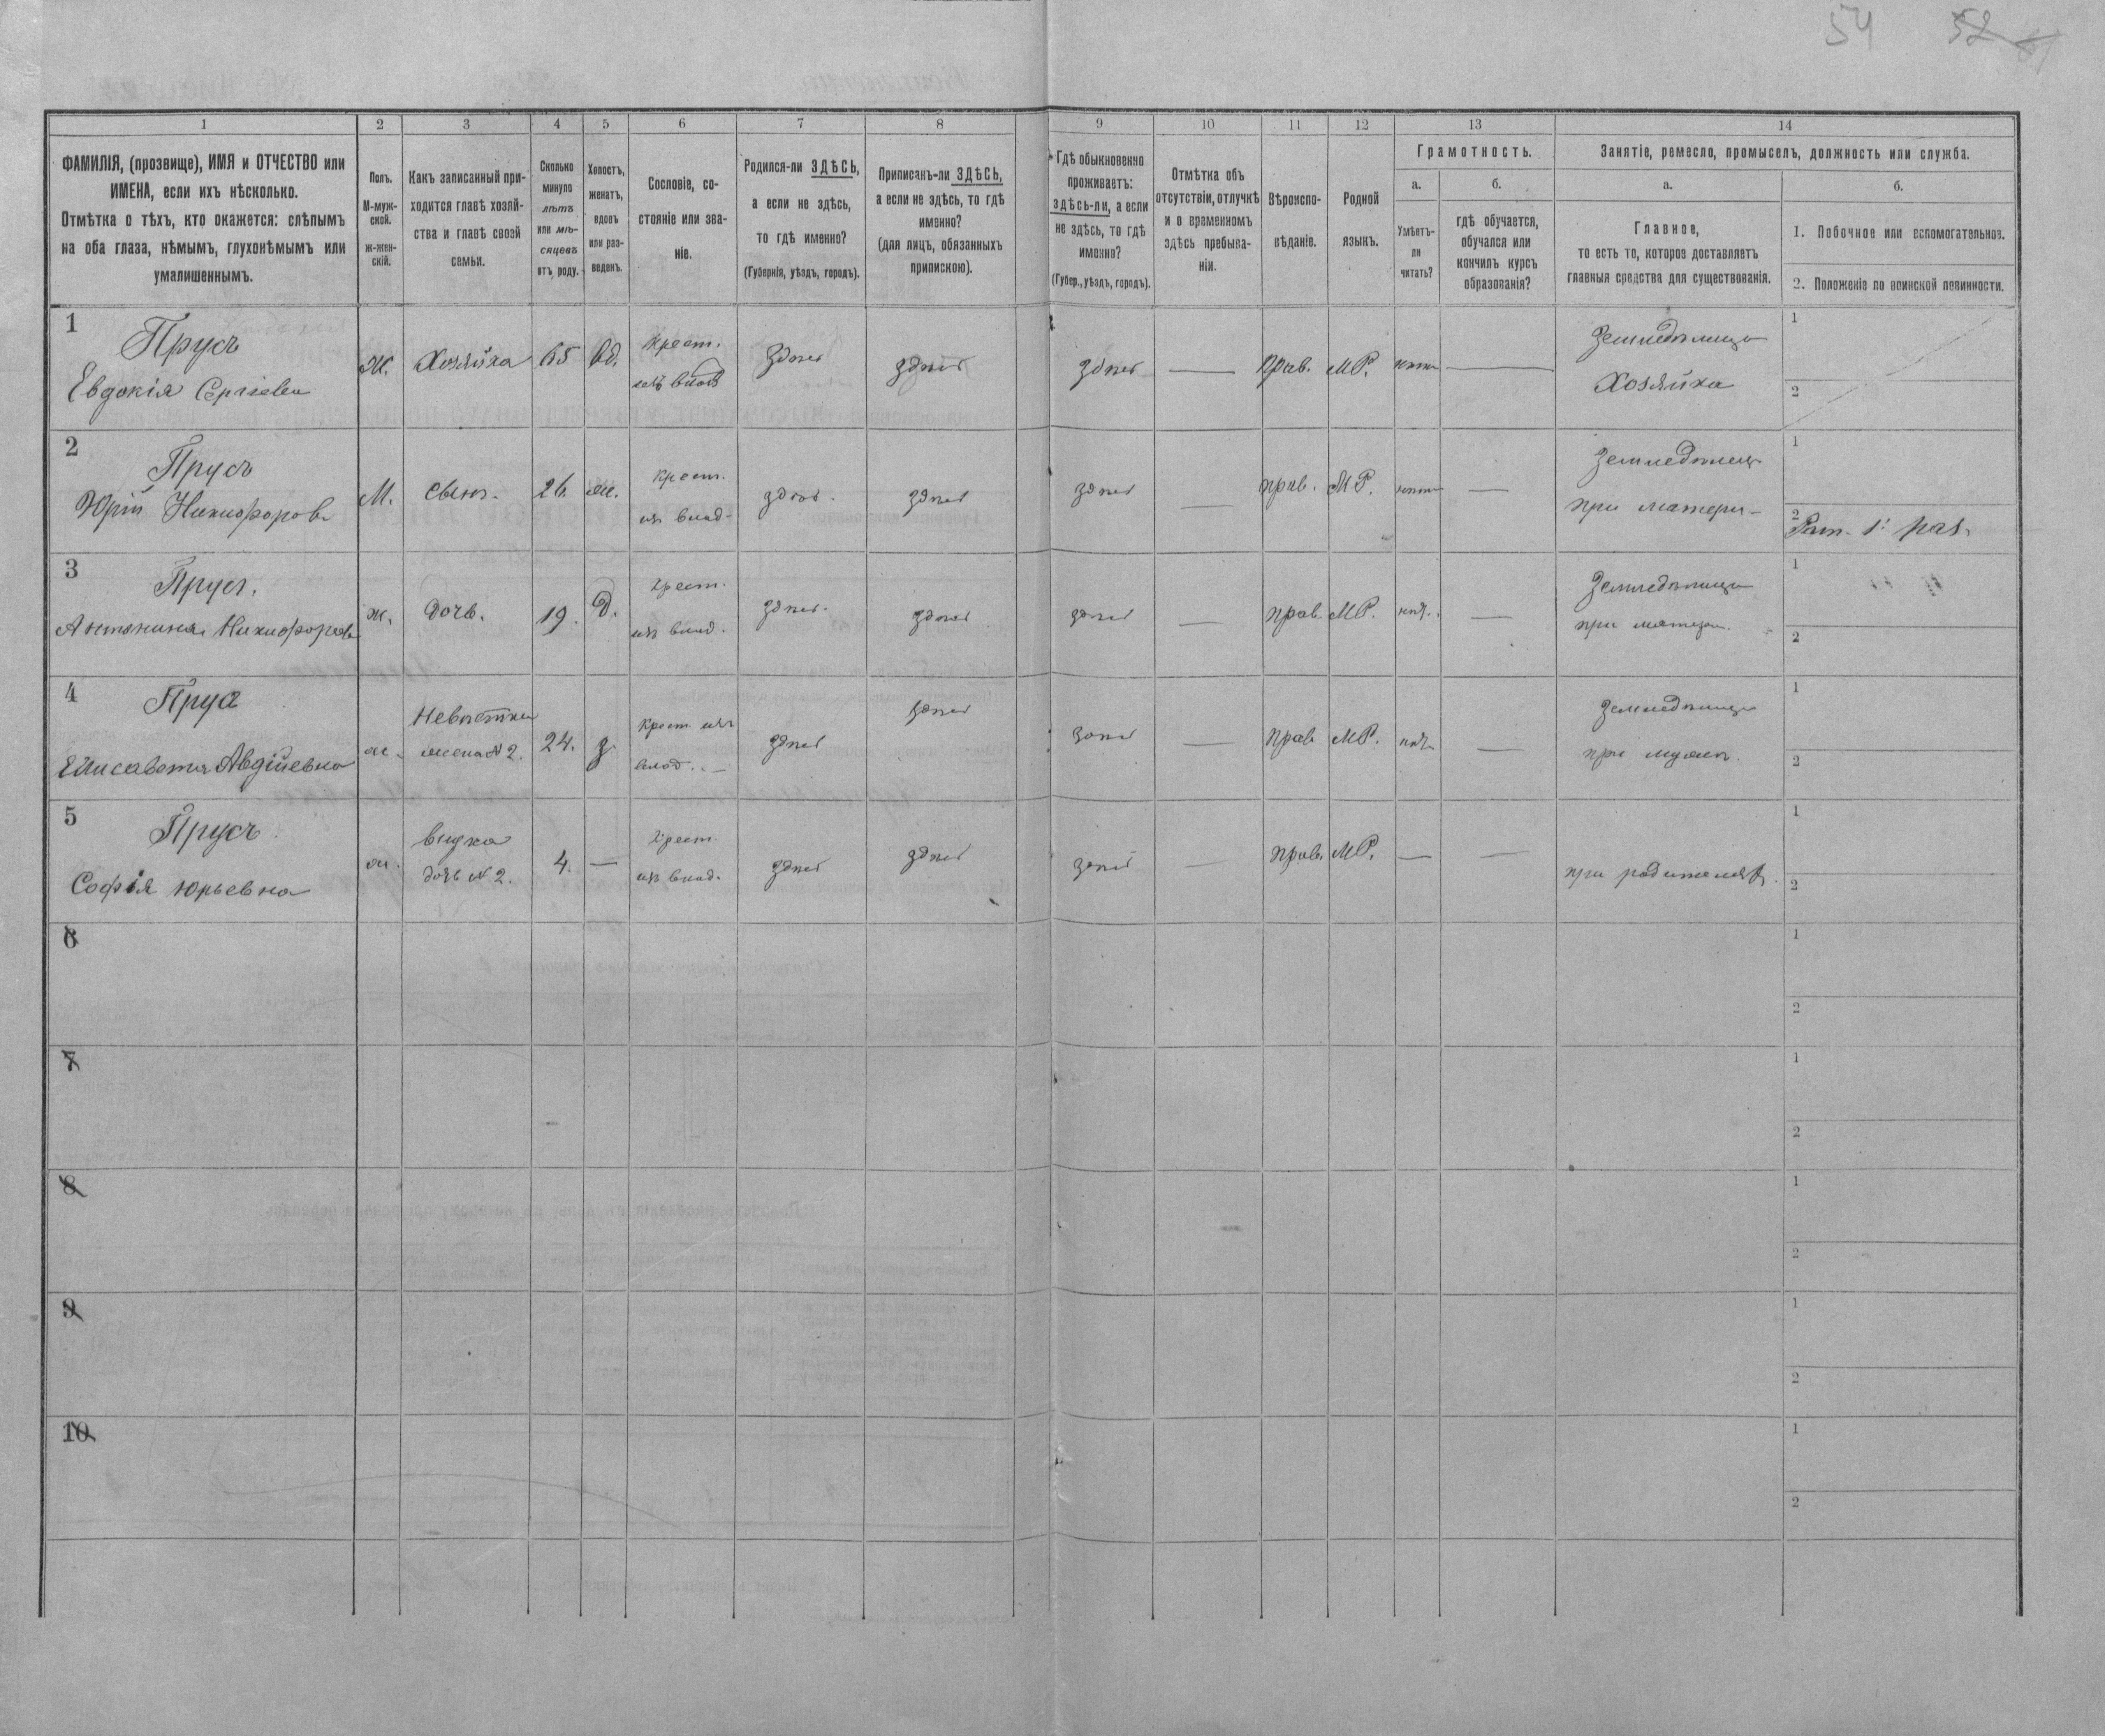 54 52
1 2 3 4 5 6 7 8 9 10 11 12 13 14
ФАМИЛІЯ, (прозвище), ИМЯ и ОТЧЕСТВО или
ИМЕНА, если ихъ нѣсколько.
Отмѣтка о тѣхъ, кто окажется: слѣпымъ
на оба глаза, нѣмымъ, глухонѣмымъ или
умалишеннымъ.
Полъ.
М-муж-
ской.
ж-жен-
скій.
Какъ записанный при-
ходится главѣ хозяй-
ства и главѣ своей
семьи.
Сколько
минуло
лѣтъ
или мѣ-
сяцевъ
отъ роду.
Холостъ,
женатъ,
вдовъ
или раз-
веденъ.
Сословіе, со-
стояніе или зва-
ніе.
Родился-ли ЗДѢСЬ,
а если не здѣсь,
то гдѣ именно?
(Губернія, уѣздъ, городъ).
Приписанъ-ли ЗДѢСЬ,
а если не здѣсь, то гдѣ
именно?
(для лицъ, обязанныхъ
припискою).
Гдѣ обыкновенно
проживаетъ:
здѣсь-ли, а если
не здѣсь, то гдѣ
именно?
(Губер., уѣздъ, городъ).
Отмѣтка объ
отсутствіи, отлучкѣ
и о временномъ
здѣсь пребыва-
ніи.
Вѣроиспо-
вѣданіе.
Родной
языкъ.
Грамотность.
а.
Умѣетъ-
ли
читать?
б.
гдѣ обучается,
обучался или
кончилъ курсъ
образованія?
Занятіе, ремесло, промыселъ, должность или служба.
а.
Главное,
то есть то, которое доставляетъ
главныя средства для существованія.
б.
1. Побочное или вспомогательное.
2. Положеніе по воинской повинности.
1
Прусъ
Евдокія Сергіевна
Ж.
Хозяйка
65
вд.
Крест.
изъ влад
здѣсь
здѣсь
здѣсь
—
Прав.
М.Р.
нѣтъ
—
Земледѣлица
Хозяйка
1
2
2
Прусъ
Юрій Никифоровъ
М.
Сынъ.
26
ж.
Крест.
изъ влад-
здѣсь.
здѣсь
здѣсь
—
прав.
М.Р.
нѣтъ
—
Земледѣлец
при матери-
1
2
Рат. 1: раз.
3
Прусъ.
Антонина Никифоровн
ж.
Дочь.
19.
Д.
Крест.
изъ влад.
здѣсь.
здѣсь
здѣсь
—
прав.
М.Р.
нѣт.
—
Земледѣлица
при матери.
1
2
4
Прус
Елисавета Авдіиевна
ж.
Невѣстка
жена N 2.
24.
з.
Крест. изъ
влад. —
здѣсь
здѣсь
здѣсь
—
Прав
М.Р.
нѣт
—
Земледѣлица
при мужѣ.
1
2
5
Прусъ
Софія Юрьевна
ж.
внука
дочь N 2.
4.
—
Крест.
изъ влад.
здѣсь
здѣсь
здѣсь
—
прав.
М.Р.
—
—
при родителях.
1
2
6
1
2
7
1
2
8
1
2
9
1
2
10
1
2